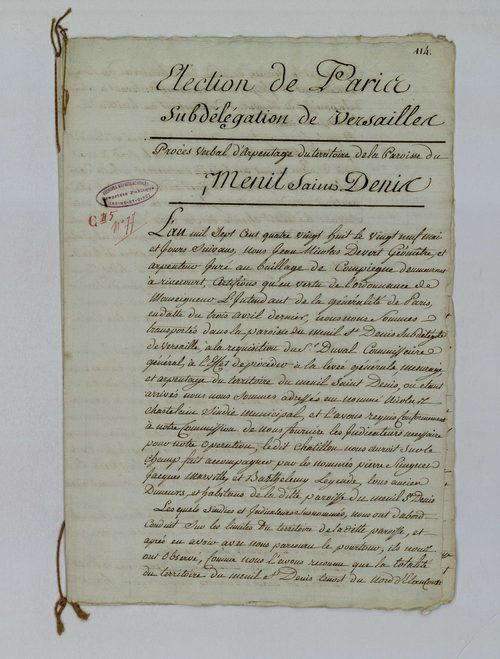 114.
Election de Paris
Subdélégation de Versailles
Procès Verbal d'Arpentage du territoire de la Paroisse du
Menil Saint Denis
C # 5
N° 77
L'an mil Sept Cent quatre vingt huit le vingt neuf mai
et Jours Suivans, nous Jean Nicolas Devert Géomètre et
arpenteur Juré au baillage de Compiegne demeurant
à rivecourt, Certifions qu'en vertu de l'ordonnance de
Monseigneur L'Intendant de la généralité de Paris,
en datte du trois avril dernier, nous nous Sommes
transportés dans la paroisse du menil St Denis Subdélégation
de Versaille, a la requisition du Sr. Duval Commissaire
général, à l'Effet de procéder à la levée générale mesurage
et arpentage du territoire du menil Saint Denis, ou étant
arrivés nous nous Sommes adressés au nommé Nicolas
chastelain Sindic municipal, et l'avons requis Conformément
à notre Commission de nous fournire les Indicateurs necessaire
pour notre Operation, ledit Chatillon nous auroit Sur le
Champ fait accompagner par les nommés pierre
Jacques et Barthelemy Legende, tous ancien
et habitans de la ditte paroisse du menil St Denis
Lesquels Sindics et Indicateurs Susnommés, nous ont d'abord
Conduit Sur les limites du Territoire de la ditte paroisse, et
après en avoir avec nous parcouru le pourtour, ils nous
ont Observé, Comme nous l'avons reconnu que la totalité
du territoire du menil St Denis tenoit du Nord d'Elancourt